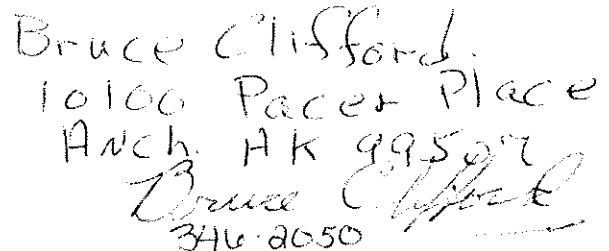 Bruce Clifford.
10100 Pacer Place
Anch. AK 99507
Bruce Clifford
346-2050